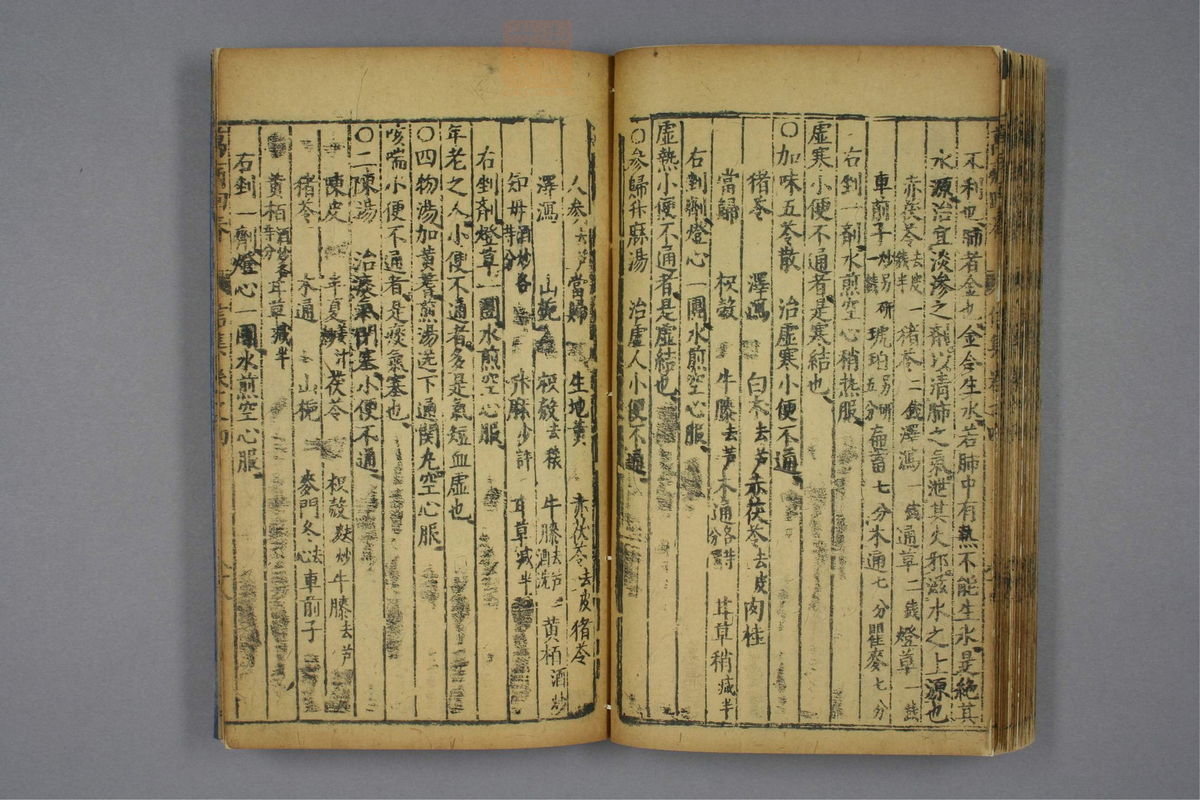 不利也肺者金也金合生水若肺中有熱不能生水是絶其
水源治宜淡滲之劑以清肺之氣泄其火邪滋水之上源也
赤茯苓去皮一錢半 猪苓二錢 澤瀉一錢 通草二錢 燈草一錢
車前子炒另研一錢 琥珀另研五分 萹蓄七分 木通七分 瞿麥七分
右剉一剤水煎空心稍熱服
虛寒小便不通者是寒結也
○加味五苓散 治虛寒小便不通
猪苓 澤瀉 白朮去芦 赤茯苓去皮 肉桂
當歸 枳殼 牛膝去芦 木通各等分 甘草稍减半
右剉劑燈心一團水煎空心服
虛熱小便不通者是虛結也
○參歸升麻湯 治虛人小便不通
人參去芦 當歸 生地黃 赤茯苓去皮 猪苓
澤瀉 山梔 枳殼去穰 牛膝去芦酒洗 黄栢酒炒
知母酒炒各等分 升麻少許 甘草减半
右剉剤燈草一團水煎空心服
年老之人小便不通者多是氣短血虛也
○四物湯加黄芪煎湯送下通関丸空心服
咳喘小便不通者是痰氣塞也
○二陳湯 治痰氣閉塞小便不通
陳皮 半夏姜汁炒 茯苓 枳殼麩炒 牛膝去芦
猪苓 木通 山梔 麥門冬去心 車前子
黄栢酒炒各等分 甘草减半
右剉一劑燈心一團水煎空心服